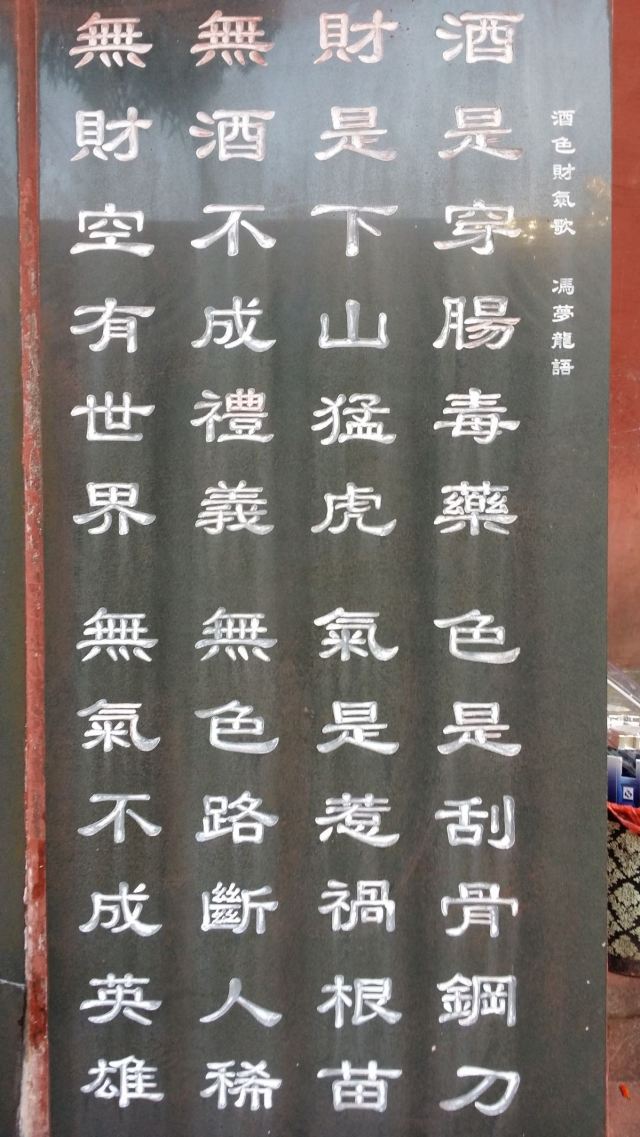 酒色財氣歌 馮夢龍語
酒是穿腸毒藥 色是刮骨鋼刀
財是下山猛虎 氣是惹禍根苗
無酒不成禮義 無色路斷人稀
無財空有世界 無氣不成英雄